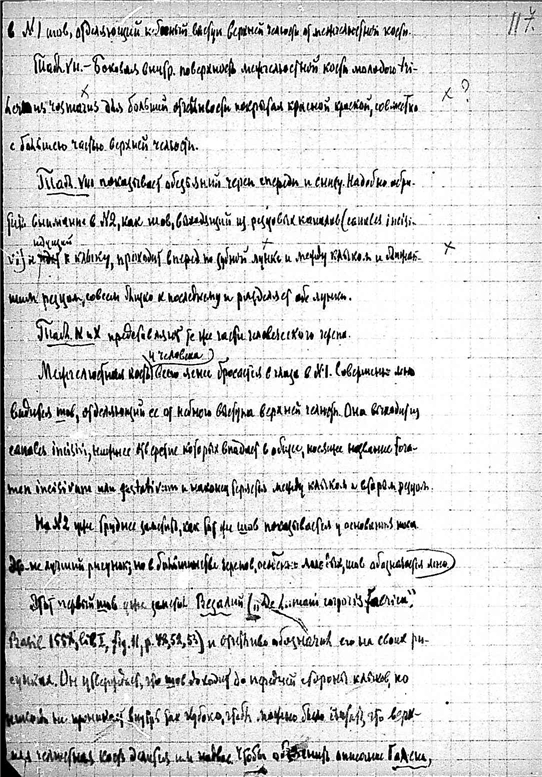 117.
в №1 шов, отделяющий небный выступ верхней челюсти от межчелюстной кости.
Табл. VII.- Боковая внутр. поверхность межчелюстной кости молодого tri-
rosmarus для большей отчетливости покрытая красной краской, совместно x ?
с большею частью верхней челюсти.
Табл. VIII показывает обезьяний череп спереди и снизу. Надобно обра-
тить внимание в №2, как шов, выходящий из резцовых каналов (canales incisi-
идущий
vi) к клыку, проходит вперед по зубной лунке и между клыком и ближай- x
шим резцом, совсем близко к последнему и разделяет обе лунки.
Табл. IX и X представляют те же части человеческого черепа.
у человека
Межчелюстная кость всего яснее бросается в глаза в №1. Совершенно ясно
видится шов, отделяющий ее от небного выступа верхней челюсти. Она выходит из
canales incisivi, нижнее отверстие которых впадает в общее, носящее название fora-
men incisivum или gustativum и наконец теряется между клыком и вторым резцом.
На №2 уже труднее заметить, как тот же шов показывается у основания носа.
Это не лучший рисунок; но в большинстве черепов, особенно молодых, шов обозначается ясно.
Этот первый шов уже заметил Везалий („De humani corporis fabrica,"
Basil 155, lib I, fig. 11, p. 48, 52, 53) и отчетливо обозначил его на своих ри-
сунках. Он утверждает, что шов доходит до передней стороны клыков, но
нигде не проникает внутрь так глубоко, чтобы можно было считать, что верх-
няя челюстная кость делится им надвое. Чтобы объяснить описание Галена,